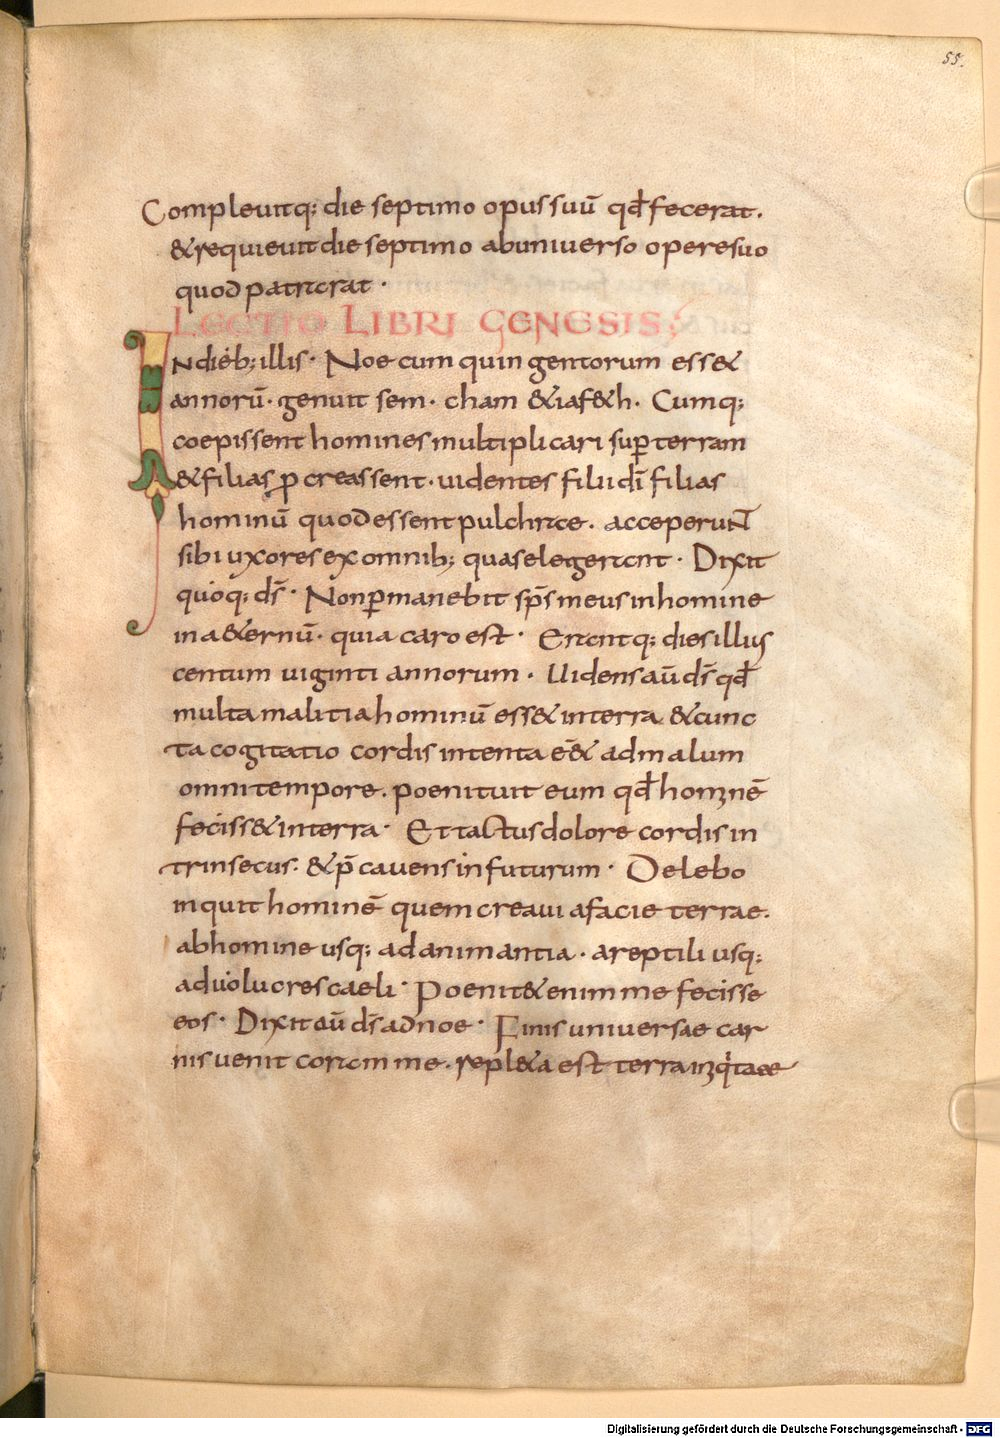 55.
Compleuitq; die septimo opus suū qđ fecerat.
& requieuit die septimo ab uniuerso opere suo
quod patrarat.
LECTIO LIBRI GENESIS;
IN dieb; illis. Noe cum quingentorum ess&
annorū. genuit sem. cham & iaf&h. Cumq;
coepissent homines multiplicari sup̄ terram
& filias ꝓcreassent. uidentes filii dī filias
hominū quod essent pulchrae. acceperunt
sibi uxores ex omnib; quas elegerant. Dixit
quoq; ds̄. Non ꝑmanebit sps̄ meus in homine
in a&ernū. quia caro est. Eruntq; dies illius
centum uiginti annorum. Uidens aū ds̄ qđ
multa malitia hominū ess& in terra & cunc
ta cogitatio cordis intenta e͞e& ad malum
omni tempore. poenituit eum qđ hominē
feciss& in terra. Et tactus dolore cordis in
trinsecus. & p̄cauens in futurum. Delebo
inquit hominē quem creaui a facie terrae.
ab homine usq; ad animantia. a reptili usq;
ad uolucres caeli. Poenit& enim me fecisse
eos. Dixit aū ds̄ ad noe. Finis uniuersae car
nis uenit coram me. repl&a est terra iniq̇tate
Digitalisierung gefördert durch die Deutsche Forschungsgemeinschaft - DFG